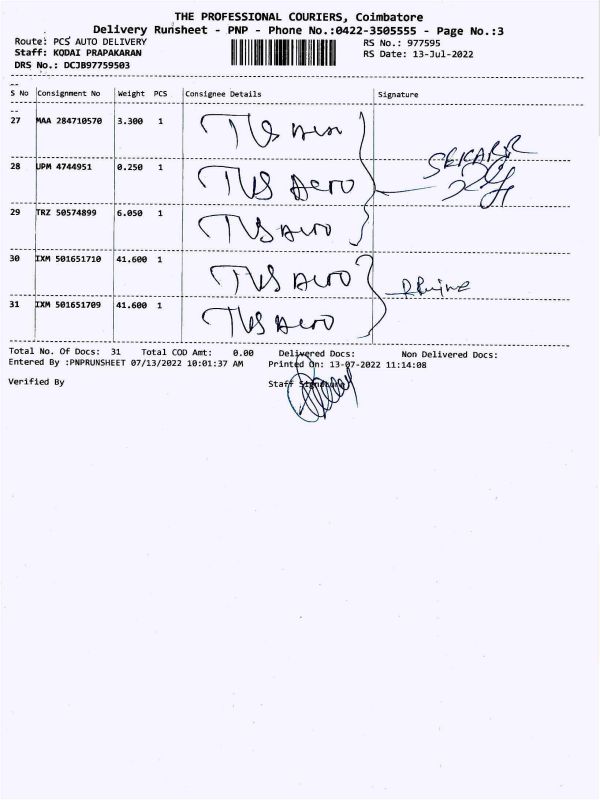 THE PROFESSIONAL COURIERS, Coimbatore
Delivery Runsheet - PNP - Phone No.:0422-3505555 - Page No.:3
Route: PCS AUTO DELIVERY RS No.: 977595
Staff: KODAI PRAPAKARAN RS Date: 13-Jul-2022
DRS No.: DCJB97759503
S No Consignment No Weight PCS Consignee Details Signature
27 MAA 284710570 3.300 1 TVS Aero
28 JPM 4744951 0.250 1 TVS Aero SEKAR.R
29 TRZ 50574899 6.050 1 TVS Aero
30 IXM 501651710 41.600 1 TVS Aero
31 IXM 501651709 41.600 1 TVS Aero
Total No. Of Docs: 31 Total COD Amt: 0.00 Delivered Docs: Non Delivered Docs:
Entered By :PNPRUNSHEET 07/13/2022 10:01:37 AM Printed On: 13-07-2022 11:14:08
Verified By Staff Signature